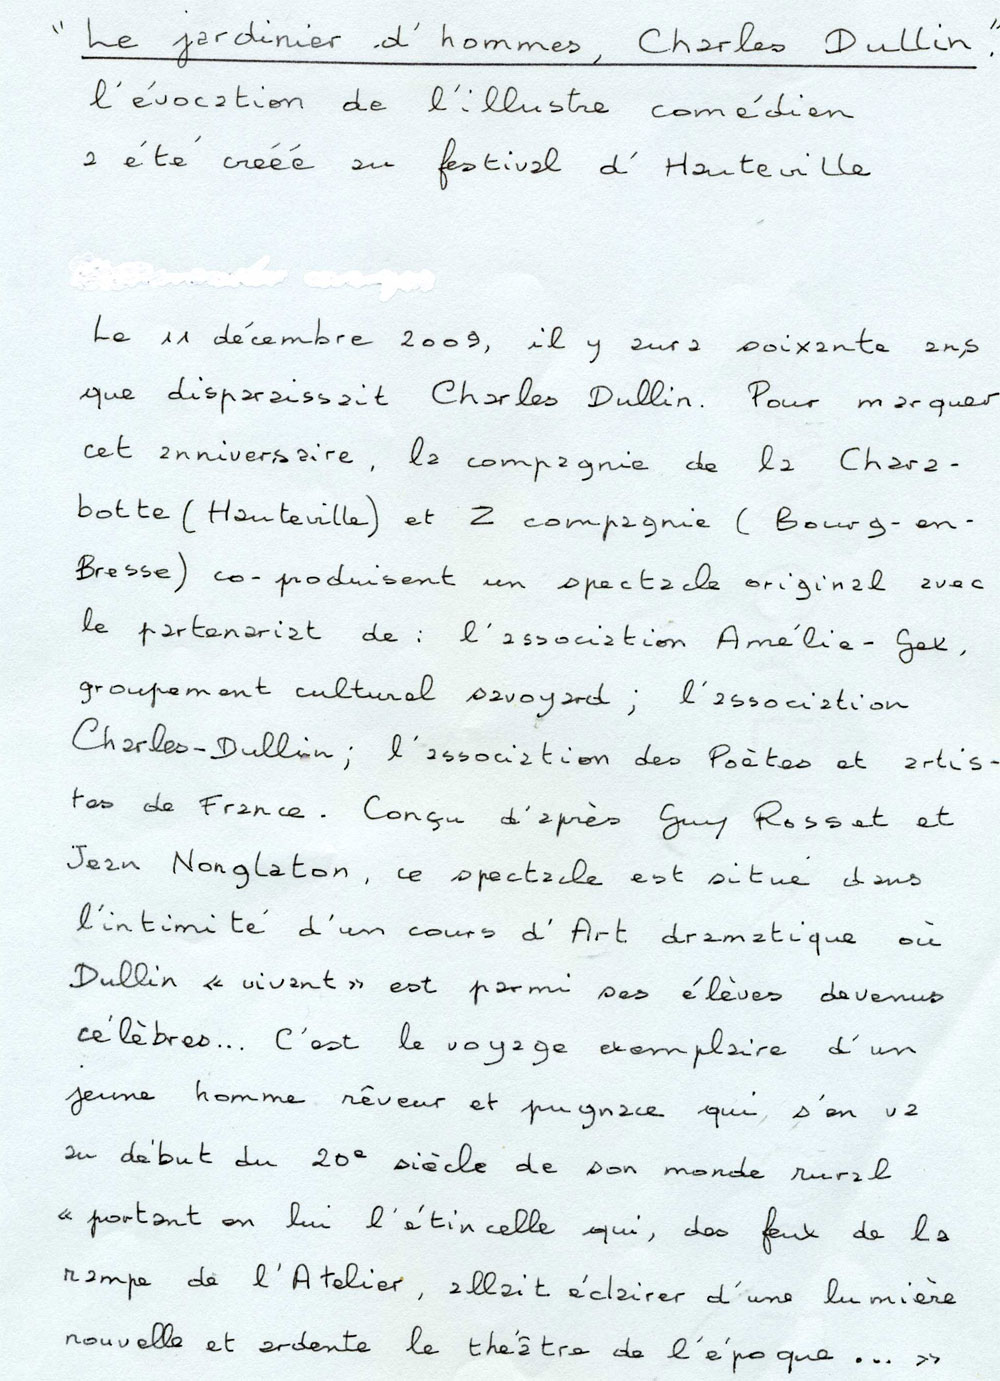 "Le jardinier d'hommes, Charles Dullin."
l'évocation de l'illustre comédien
a été créée au festival d'Hauteville
Le 11 décembre 2009, il y aura soixante ans
que disparaissait Charles Dullin. Pour marquer
cet anniversaire, la compagnie de la Chara-
botte (Hauteville) et Z compagnie (Bourg-en-
Bresse) co-produisent un spectacle original avec
le partenariat de : l'association Amélie-Gex,
groupement culturel savoyard ; l'association
Charles-Dullin ; l'association des Poètes et artis-
tes de France. Conçu d'après Guy Rosset et
Jean Nonglaton, ce spectacle est situé dans
l'intimité d'un cours d'Art dramatique où
Dullin « vivant » est parmi ses élèves devenus
célèbres... C'est le voyage exemplaire d'un
jeune homme rêveur et pugnace qui s'en va
au début du 20e siècle de son monde rural
« portant en lui l'étincelle qui, des feux de la
rampe de l'Atelier, allait éclairer d'une lumière
nouvelle et ardente le théâtre de l'époque ... »